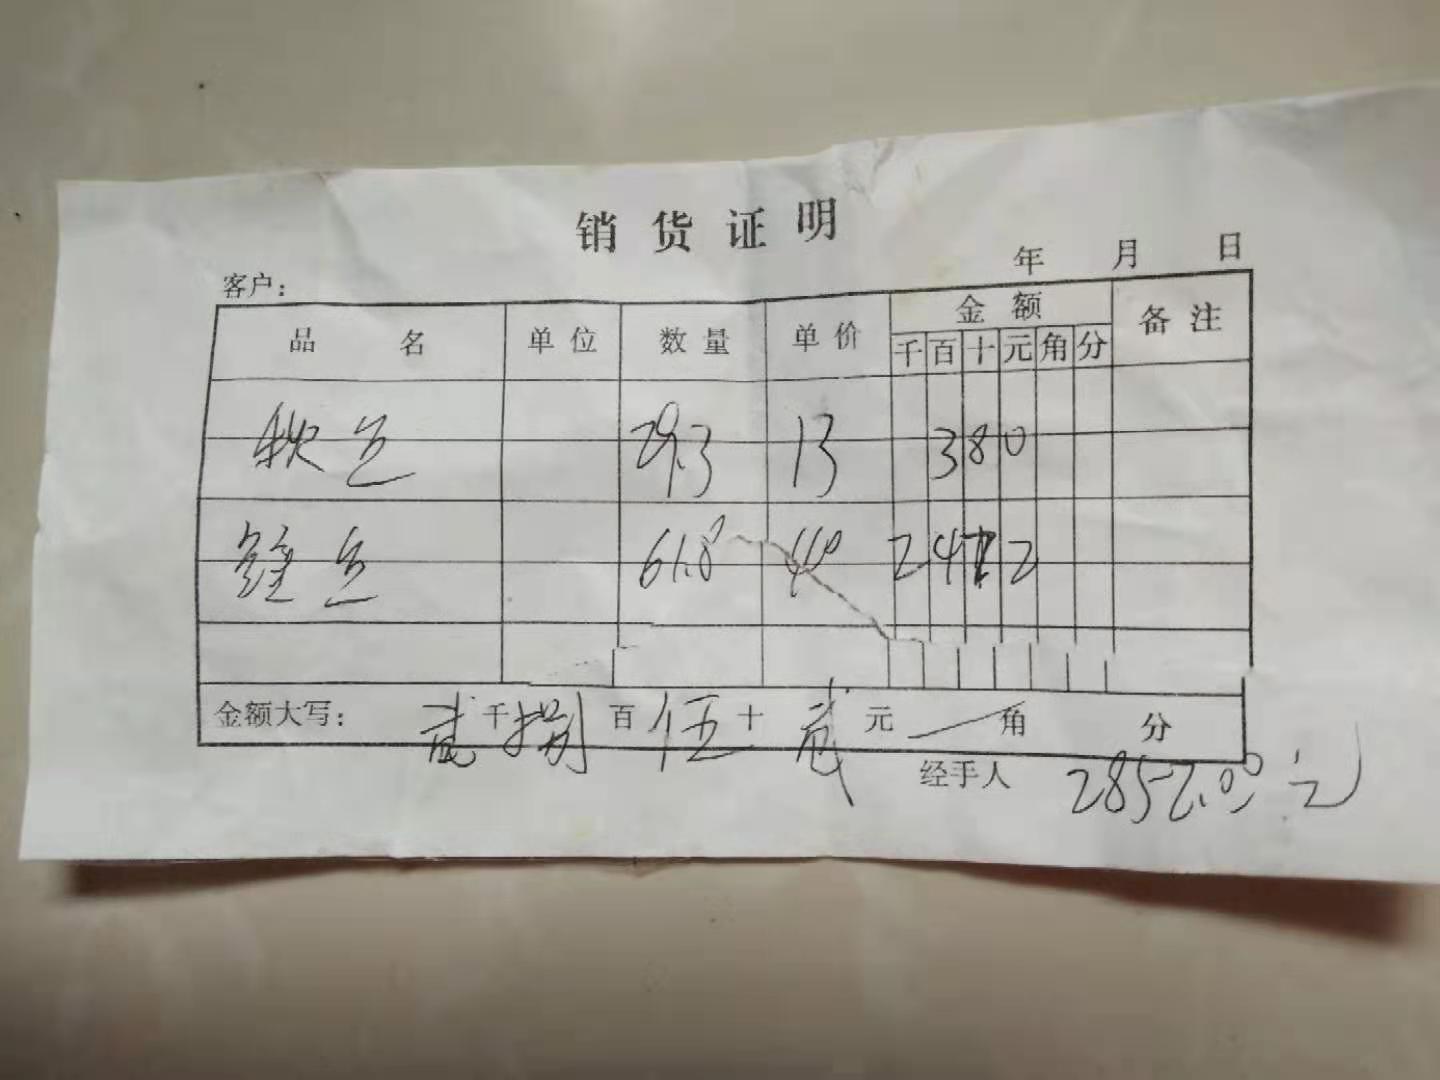 销货证明
年 月 日
客户：
品名 单位 数量 单价 金额 备注
千 百 十 元 角 分
29.3 13 380
61.8 40 2472
金额大写： 贰千捌百伍十贰元 角 分
经手人 2852.00元